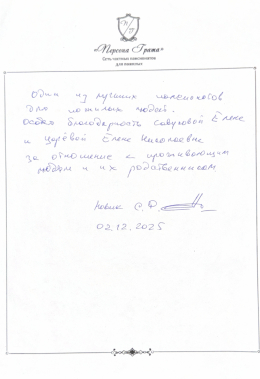 «Персона Грата»
Сеть частных пансионатов
для пожилых
Один из лучших пансионатов
для пожилых людей.
Особая благодарность Савуковой Елене
и Царёвой Елене Николаевне
за отношение к проживающим
людям и их родственникам
02.12.2025